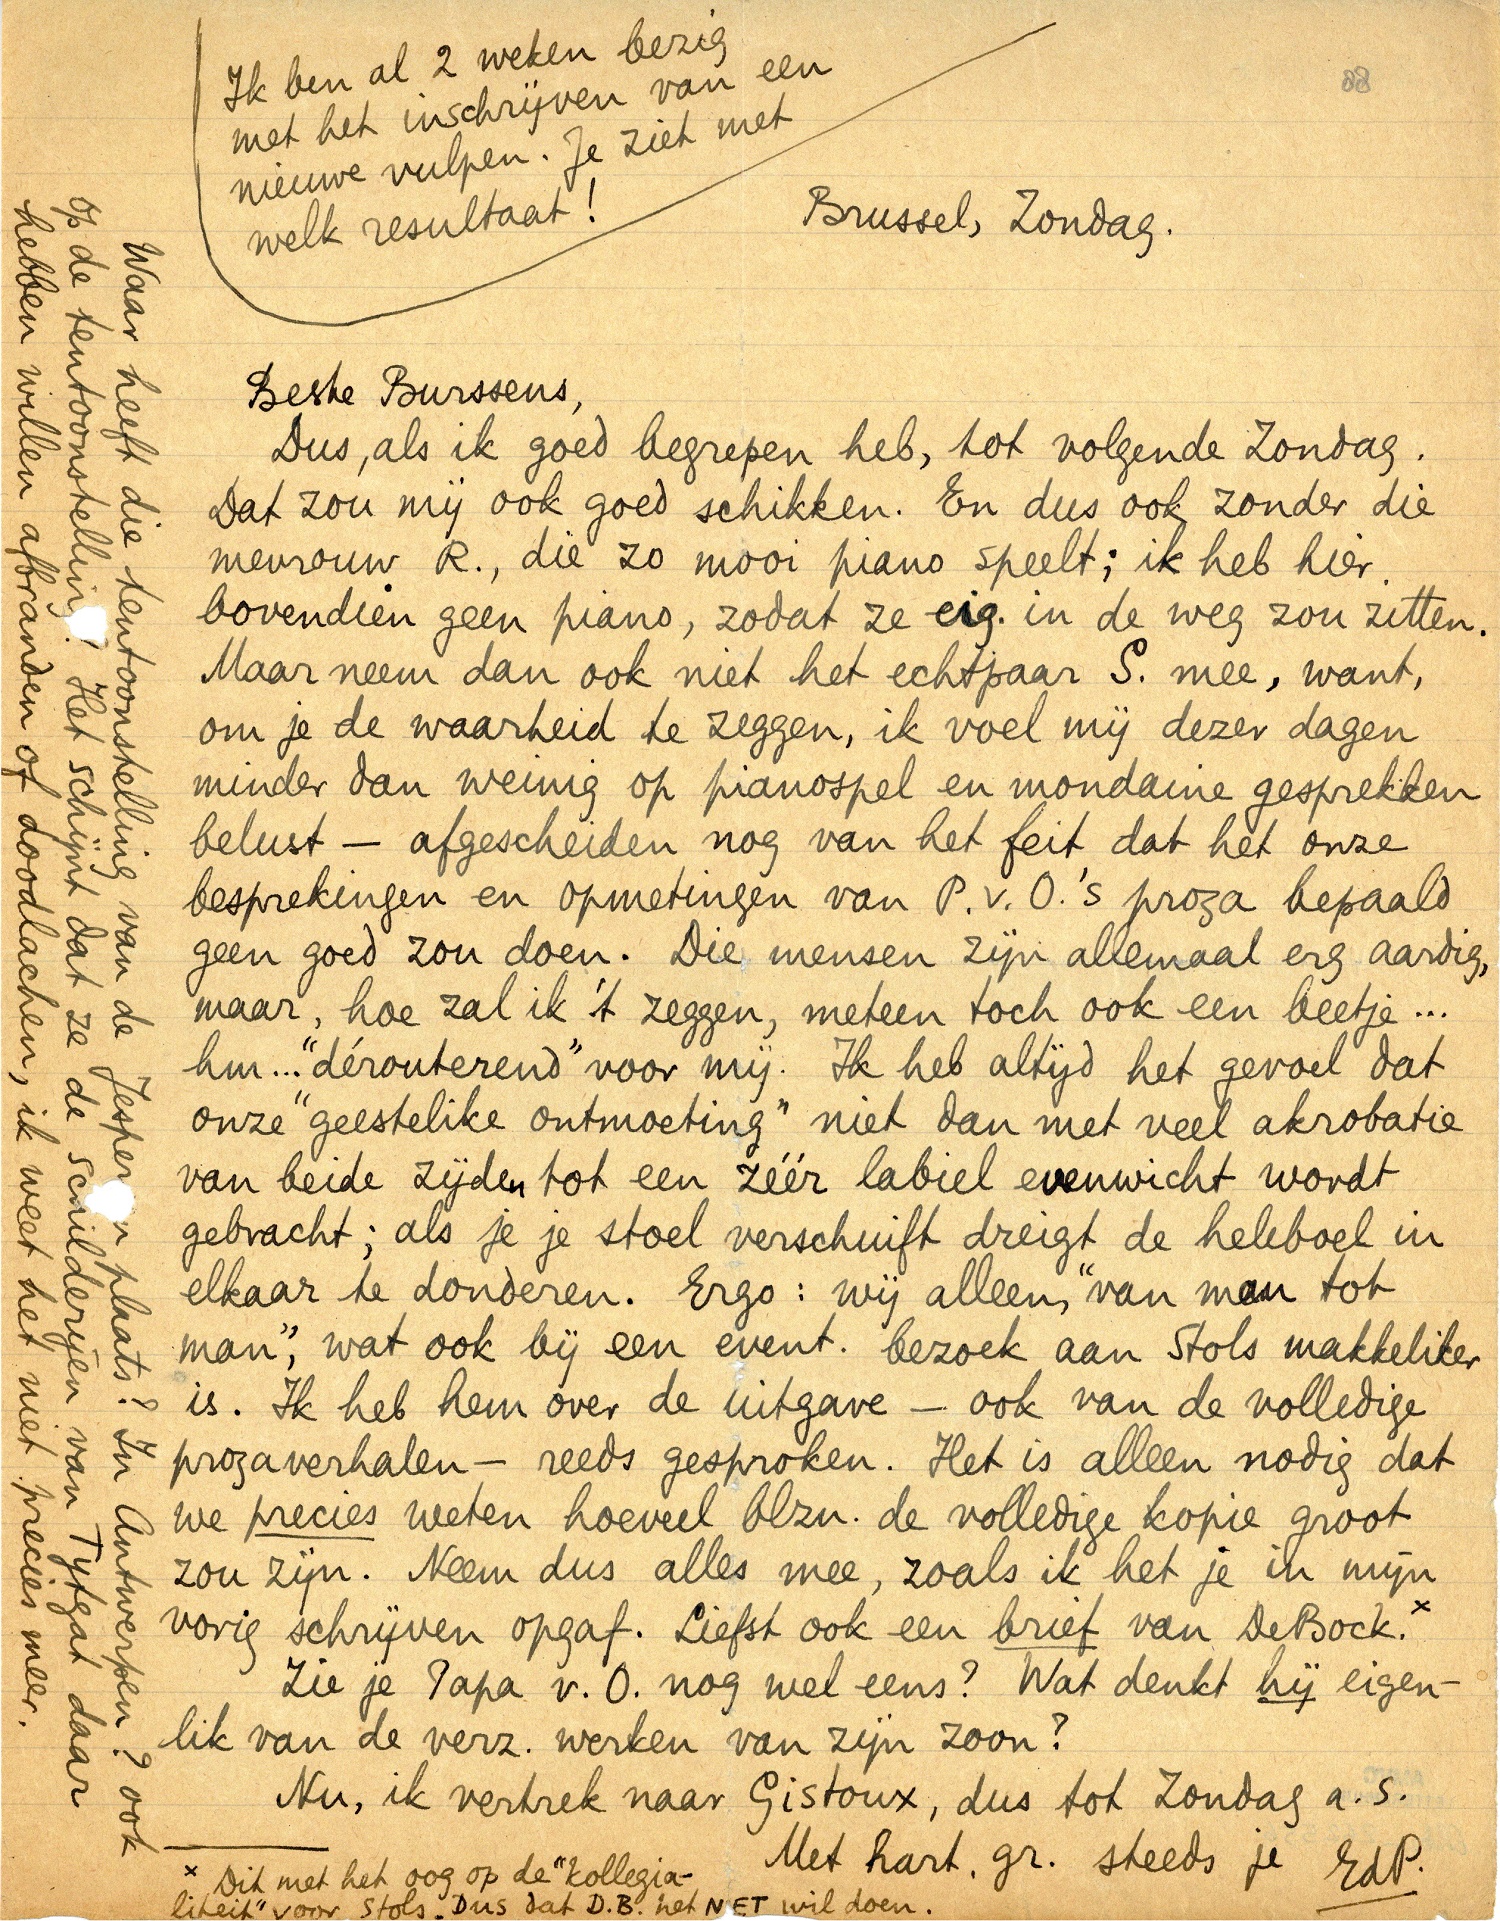 Ik ben al 2 weken bezig
met het inschrijven van een
nieuwe vulpen. Je ziet met
welk resultaat!
Brussel, Zondag.
Beste Burssens,
Dus, als ik goed begrepen heb, tot volgende Zondag.
Dat zou mij ook goed schikken. En dus ook zonder die
mevrouw R., die zo mooi piano speelt; ik heb hier
bovendien geen piano, zodat ze eig. in de weg zou zitten.
Maar neem dan ook niet het echtpaar S. mee, want,
om je de waarheid te zeggen, ik voel mij dezer dagen
minder dan weinig op pianospel en mondaine gesprekken
belust — afgescheiden nog van het feit dat het onze
besprekingen en opmetingen van P.v.O.'s proza bepaald
geen goed zou doen. Die mensen zijn allemaal erg aardig,
maar, hoe zal ik 't zeggen, meteen toch ook een beetje ...
hm... "dérouterend" voor mij. Ik heb altijd het gevoel dat
onze "geestelike ontmoeting" niet dan met veel akrobatie
van beide zijden tot een zéér labiel evenwicht wordt
gebracht; als je je stoel verschuift dreigt de heleboel in
elkaar te donderen. Ergo: wij alleen, "van man tot
man", wat ook bij een event. bezoek aan Stols makkeliker
is. Ik heb hem over de uitgave — ook van de volledige
prozaverhalen — reeds gesproken. Het is alleen nodig dat
we precies weten hoeveel blzn. de volledige kopie groot
zou zijn. Neem dus alles mee, zoals ik het je in mijn
vorig schrijven opgaf. Liefst ook een brief van DeBock.ˣ
Zie je Papa v. O. nog wel eens? Wat denkt hij eigen-
lik van de verz. werken van zijn zoon?
Nu, ik vertrek naar Gistoux, dus tot Zondag a.s.
Met hart. gr. steeds je EdP.
ˣ Dit met het oog op de "kollegia-
liteit" voor Stols. Dus dat D.B. het NIET wil doen.
Waar heeft die tentoonstelling van de Jespersen plaats? In Antwerpen? Ook
op de tentoonstelling? Het schijnt dat ze de schilderijen van Tytgat daar
hebben willen afbranden of doodlachen, ik weet het niet precies meer.